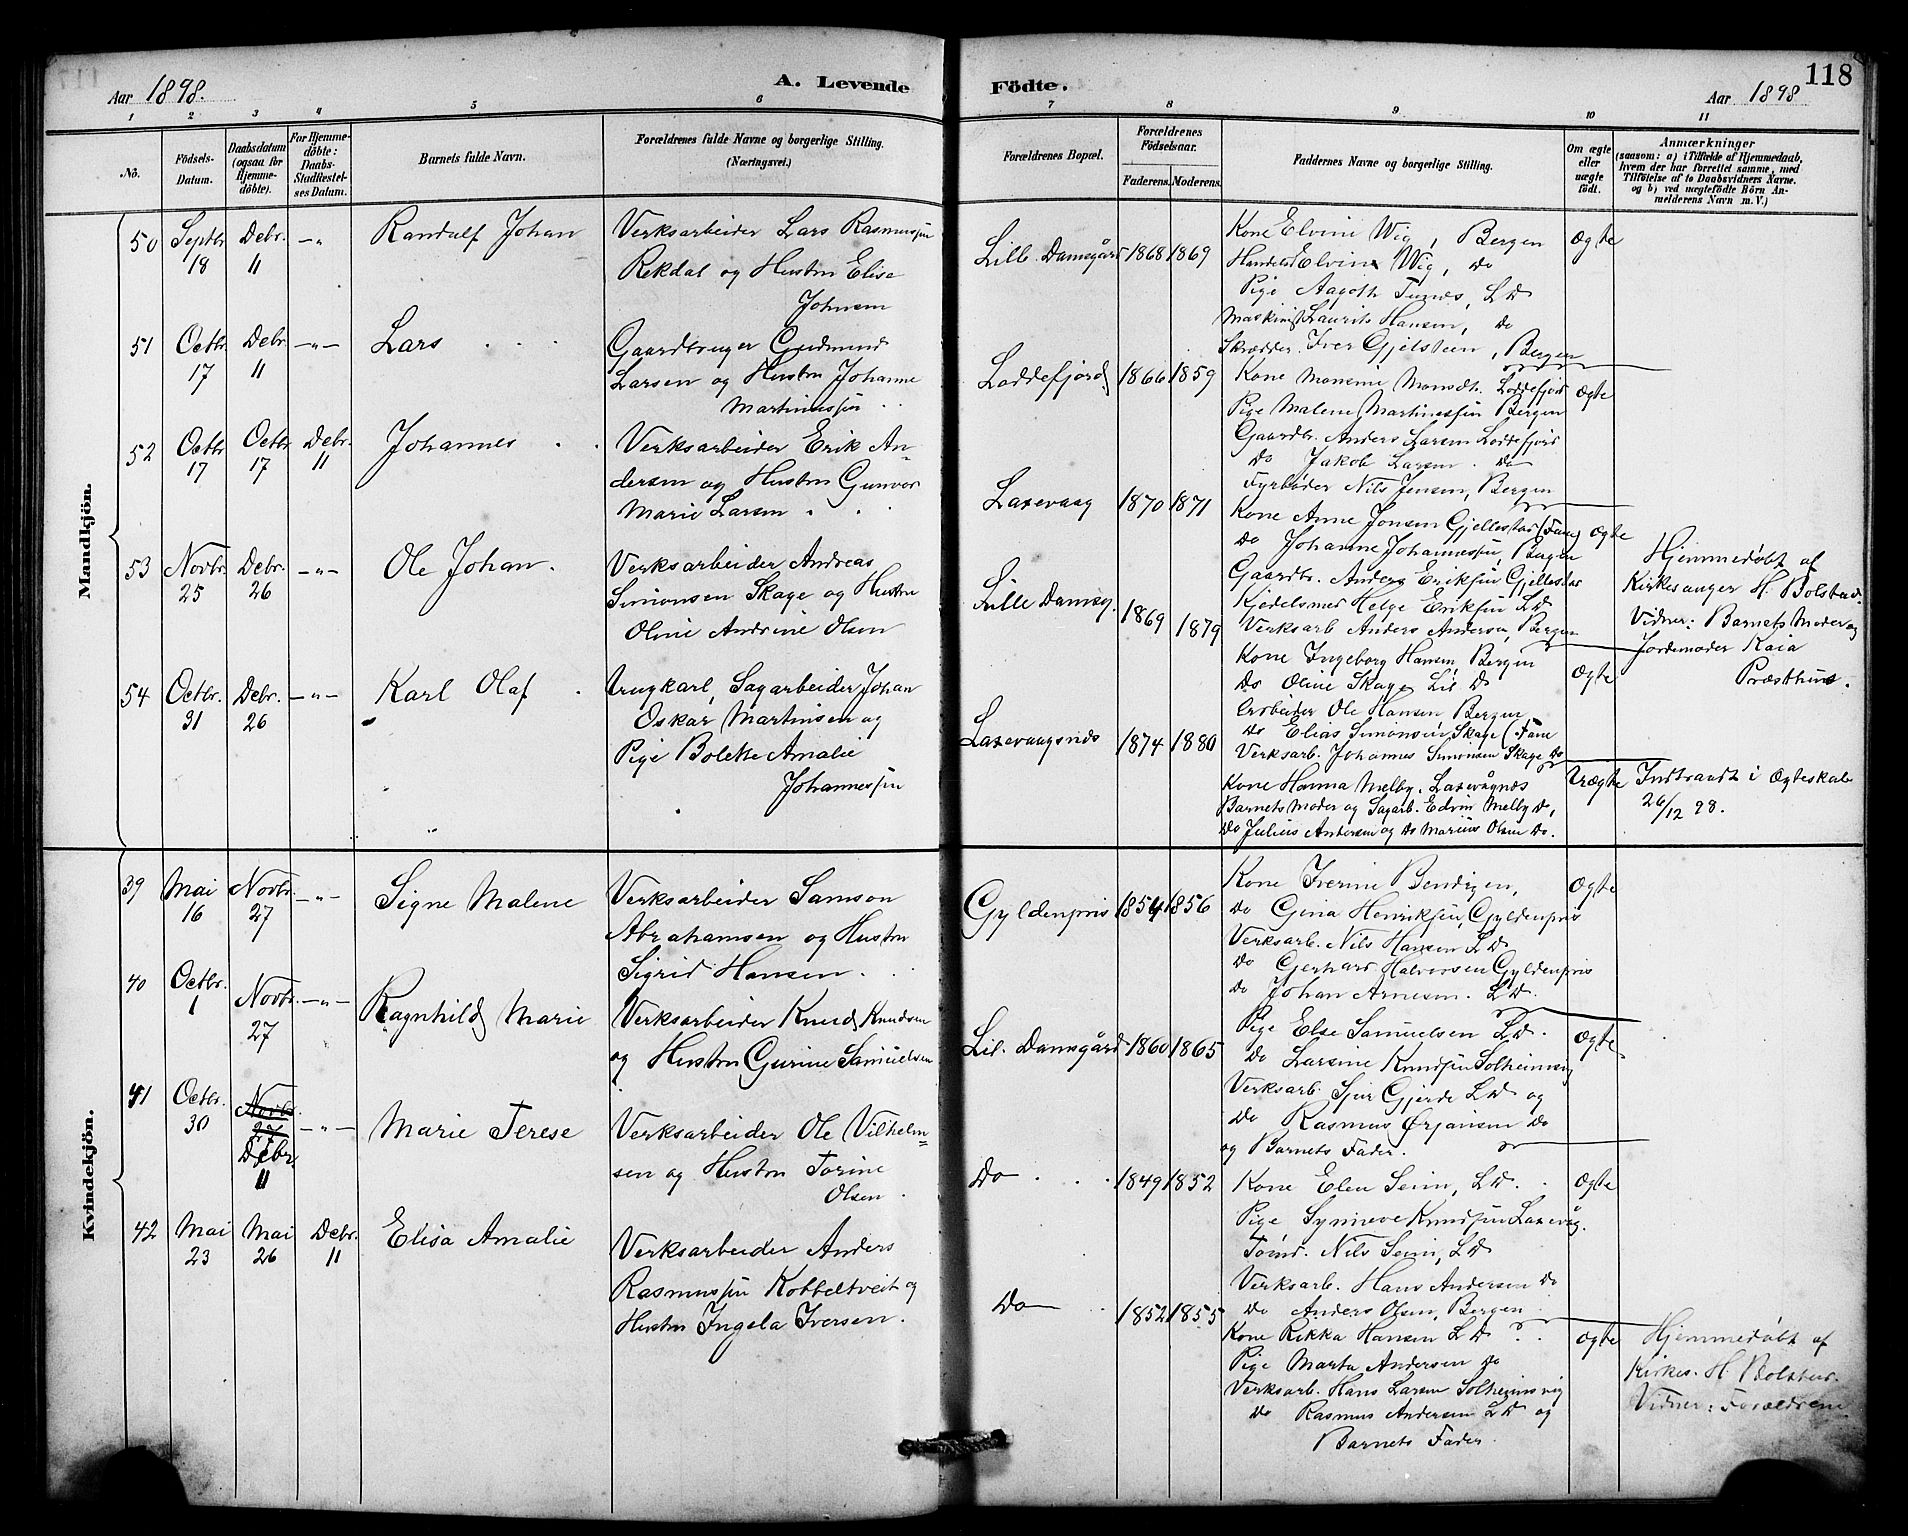 Aar 1898.
A. Levende Födte.
Aar 1898
118
1 2 3 4 5 6 7 8 9 10 11
No.
Födsels-Datum.
Daabsdatum (ogsaa for Hjemme-döbte).
For Hjemme-döbte: Daabs-Stadfæstel-ses Datum.
Barnets fulde Navn.
Forældrenes fulde Navne og borgerlige Stilling. (Næringsvei.)
Forældrenes Bopæl.
Forældrenes Födselsaar.
Faderens. Moderens.
Faddernes Navne og borgerlige Stilling.
Om ægte eller uægte födt.
Anmærkninger
(saasom: a) i Tilfælde af Hjemmedaab,
hvem der har forrettet samme, med
Tilföielse af to Daabsvidners Navne.
og b) ved uægtefödte Börn An-
melderens Navn m. V.)
Mandkjön.
50 Septbr. 18 Debr. 11 -"- Randulf Johan
Verksarbeider Lars Rasmussen
Rekdal og Hustru Elisa
Johnsen
Lill. Damsgård 1868 1869
Kone Elvine Wig, Bergen
Handelsd Elvin Wig, do
Pige Aagoth Tunes, L D
Maskinist Laurits Hansen, do
Skrædder. Iver Gjelsteen, Bergen
Ægte
51 Octbr. 17 Debr. 11 -"- Lars
Gaardbruger Gudmund
Larsen og Hustru Johanne
Martinussen
Loddefjord 1866 1859
Kone Monsine Monsdt. Loddefjord
Pige Malene Martinussen Bergen
Gaardbr. Anders Larsen Loddefjord
do Jakob Larsen. do
Fyrbøder Nils Jensen, Bergen
Ægte
52 Octbr 17 Octbr 17 Debr. 11 Johannes
Verksarbeider Erik An-
dersen og Hustru Gunvor
Marie Larsen
Laxevaag 1870 1871
Kone Anne Jonsen Gjellestad (Fane)
do Johanne Johannessen, Bergen
Gaardbr. Anders Eriksen Gjellestad
Kjedelsmed Helge Eriksen L D
Verksarb Anders Andersen, Bergen
Ægte
Hjemmedøbt af
Kirkesanger H. Bolstad.
Vidner: Barnets Moder og
Jordemoder Kaia
Præsthus.
53 Novbr. 25 Debr. 26 -"- Ole Johan.
Verksarbeider Andreas
Simonsen Skage og Hustru
Oline Andrine Olsen
Lille Damsg. 1869 1879
Kone Ingeborg Hansen, Bergen
do Oline Skage Lil. D
Arbeider Ole Hansen Bergen
do Elias Simonsen Skage (Fane
Verksarb. Johannes Simonsen Skage do
Ægte
54 Octbr. 31 Debr. 26 -"- Karl Olaf
Ungkarl, Sagarbeider Johan
Oskar Martinsen og
Pige Bolette Amalie
Johannessen
Laxevaagsnæs 1874 1880
Kone Hanna Melby. Laxevågnæs
Barnets Moder og Sagarb. Edvin Melby do,
do Julius Andersen og do Marius Olsen do.
Uægte
Indtraadt i Ægteskab
26/12 98.
Kvindekjön.
39 Mai 16 Novbr. 27 -"- Signe Malene
Verksarbeider Samson
Abrahamsen og Hustru
Sigrid Hansen
Gyldenpris 1854 1856
Kone Iverine Bendixen,
do Gina Henriksen, Gyldenpris
Verksarb. Nils Hansen L D
do Gerhard Halvorsen Gyldenpris
do Johan Arnesen. L D.
Ægte
40 Octbr. 1 Novbr. 27 -"- Ragnhild Marie
Verksarbeider Knud Knudsen
og Hustru Gurine Samuelsen
Lil. Damsgård 1860 1865
Pige Else Samuelsen L D.
do Larsine Knudsen Solheimsvig
Verksarb. Sjur Gjerde L D og
do Rasmus Ørjansen do
og Barnets Fader.
Ægte
41 Octbr. 30 Novbr. 27 Debr 11 -"- Marie Terese
Verksarbeider Ole Vilhelm-
sen og Hustru Torine
Olsen
Do 1849 1852
Kone Elen Seim, L D.
Pige Synneve Knudsen Laxevåg.
Tømd. Nils Seim, L D
Verksarb. Hans Andersen do
do Anders Olsen, Bergen
Ægte
42 Mai 23 Mai 26 Debr. 11 Elisa Amalie
Verksarbeider Anders
Rasmussen Kobbeltveit og
Hustru Ingela Iversen.
Do 1852 1855
Kone Rikka Hansen L D
Pige Marta Andersen do
Verksarb. Hans Larsen Solheimsvig
do Rasmus Andersen L D og
Barnets Fader.
Ægte
Hjemmedøbt af
Kirkes. H. Bolstad.
Vidner: Forældrene